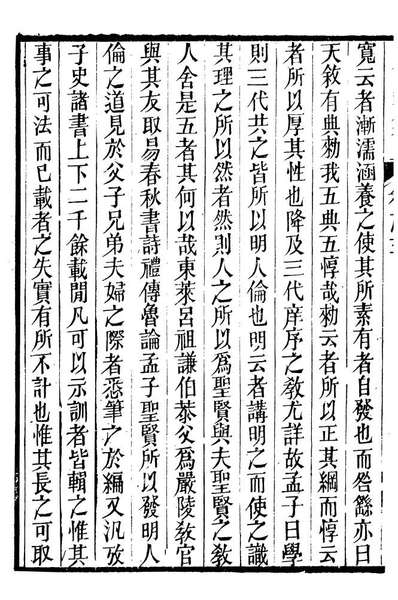 寬云者漸濡涵養之使其所素有者自發也而咎繇亦曰
天敘有典勑我五典五惇哉勑云者所以正其綱而惇云
者所以厚其性也降及三代庠序之敎尤詳故孟子曰學
則三代共之皆所以明人倫也明云者講明之而使之識
其理之所以然者然則人之所以爲聖賢與夫聖賢之敎
人舍是五者其何以哉東萊呂祖謙伯恭父爲嚴陵敎官
與其友取易春秋書詩禮傳魯論孟子聖賢所以發明人
倫之道見於父子兄弟夫婦之際者悉筆之於編又汎攷
子史諸書上下二千餘載閒凡可以示訓者皆輯之惟其
事之可法而已載者之失實有所不計也惟其長之可取